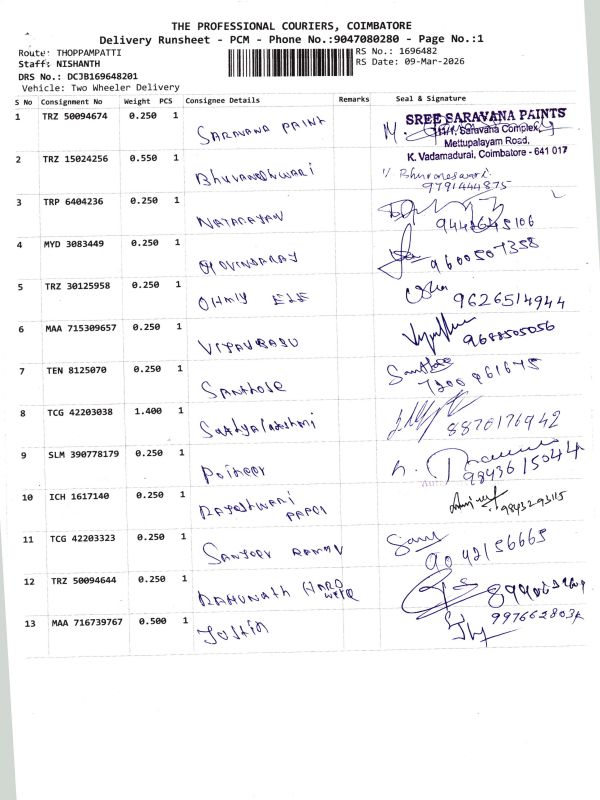 THE PROFESSIONAL COURIERS, COIMBATORE
Delivery Runsheet - PCM - Phone No.:9047080280 - Page No.:1
Route: THOPPAMPATTI
RS No.: 1696482
Staff: NISHANTH
RS Date: 09-Mar-2026
DRS No.: DCJB169648201
Vehicle: Two Wheeler Delivery
S No Consignment No Weight PCS Consignee Details Remarks Seal & Signature
1 TRZ 50094674 0.250 1 SARAVANA PAINT
SREE SARAVANA PAINTS
11/1, Saravana Complex,
Mettupalayam Road,
K. Vadamadurai, Coimbatore - 641 017
2 TRZ 15024256 0.550 1 Bhuvaneshwari Bhuvaneswari
9791444875
3 TRP 6404236 0.250 1 NATARAJAN
9442645106
4 MYD 3083449 0.250 1 GOVINDARAJ 9600507358
5 TRZ 30125958 0.250 1 OHMIY ELE Usha 9626514944
6 MAA 715309657 0.250 1 VIJAYBABU 9688505056
7 TEN 8125070 0.250 1 SANTHOSE Santhose
7200961675
8 TCG 42203038 1.400 1 Sathya lakshmi 8870176942
9 SLM 390778179 0.250 1 Poineer
9843615044
10 ICH 1617140 0.250 1 RAJESHWARI 9843293115
11 TCG 42203323 0.250 1 SANJOEV
9042156665
12 TRZ 50094644 0.250 1 RAHUNATH HARD
WERE
13 MAA 716739767 0.500 1 JUSTIN 9976628034